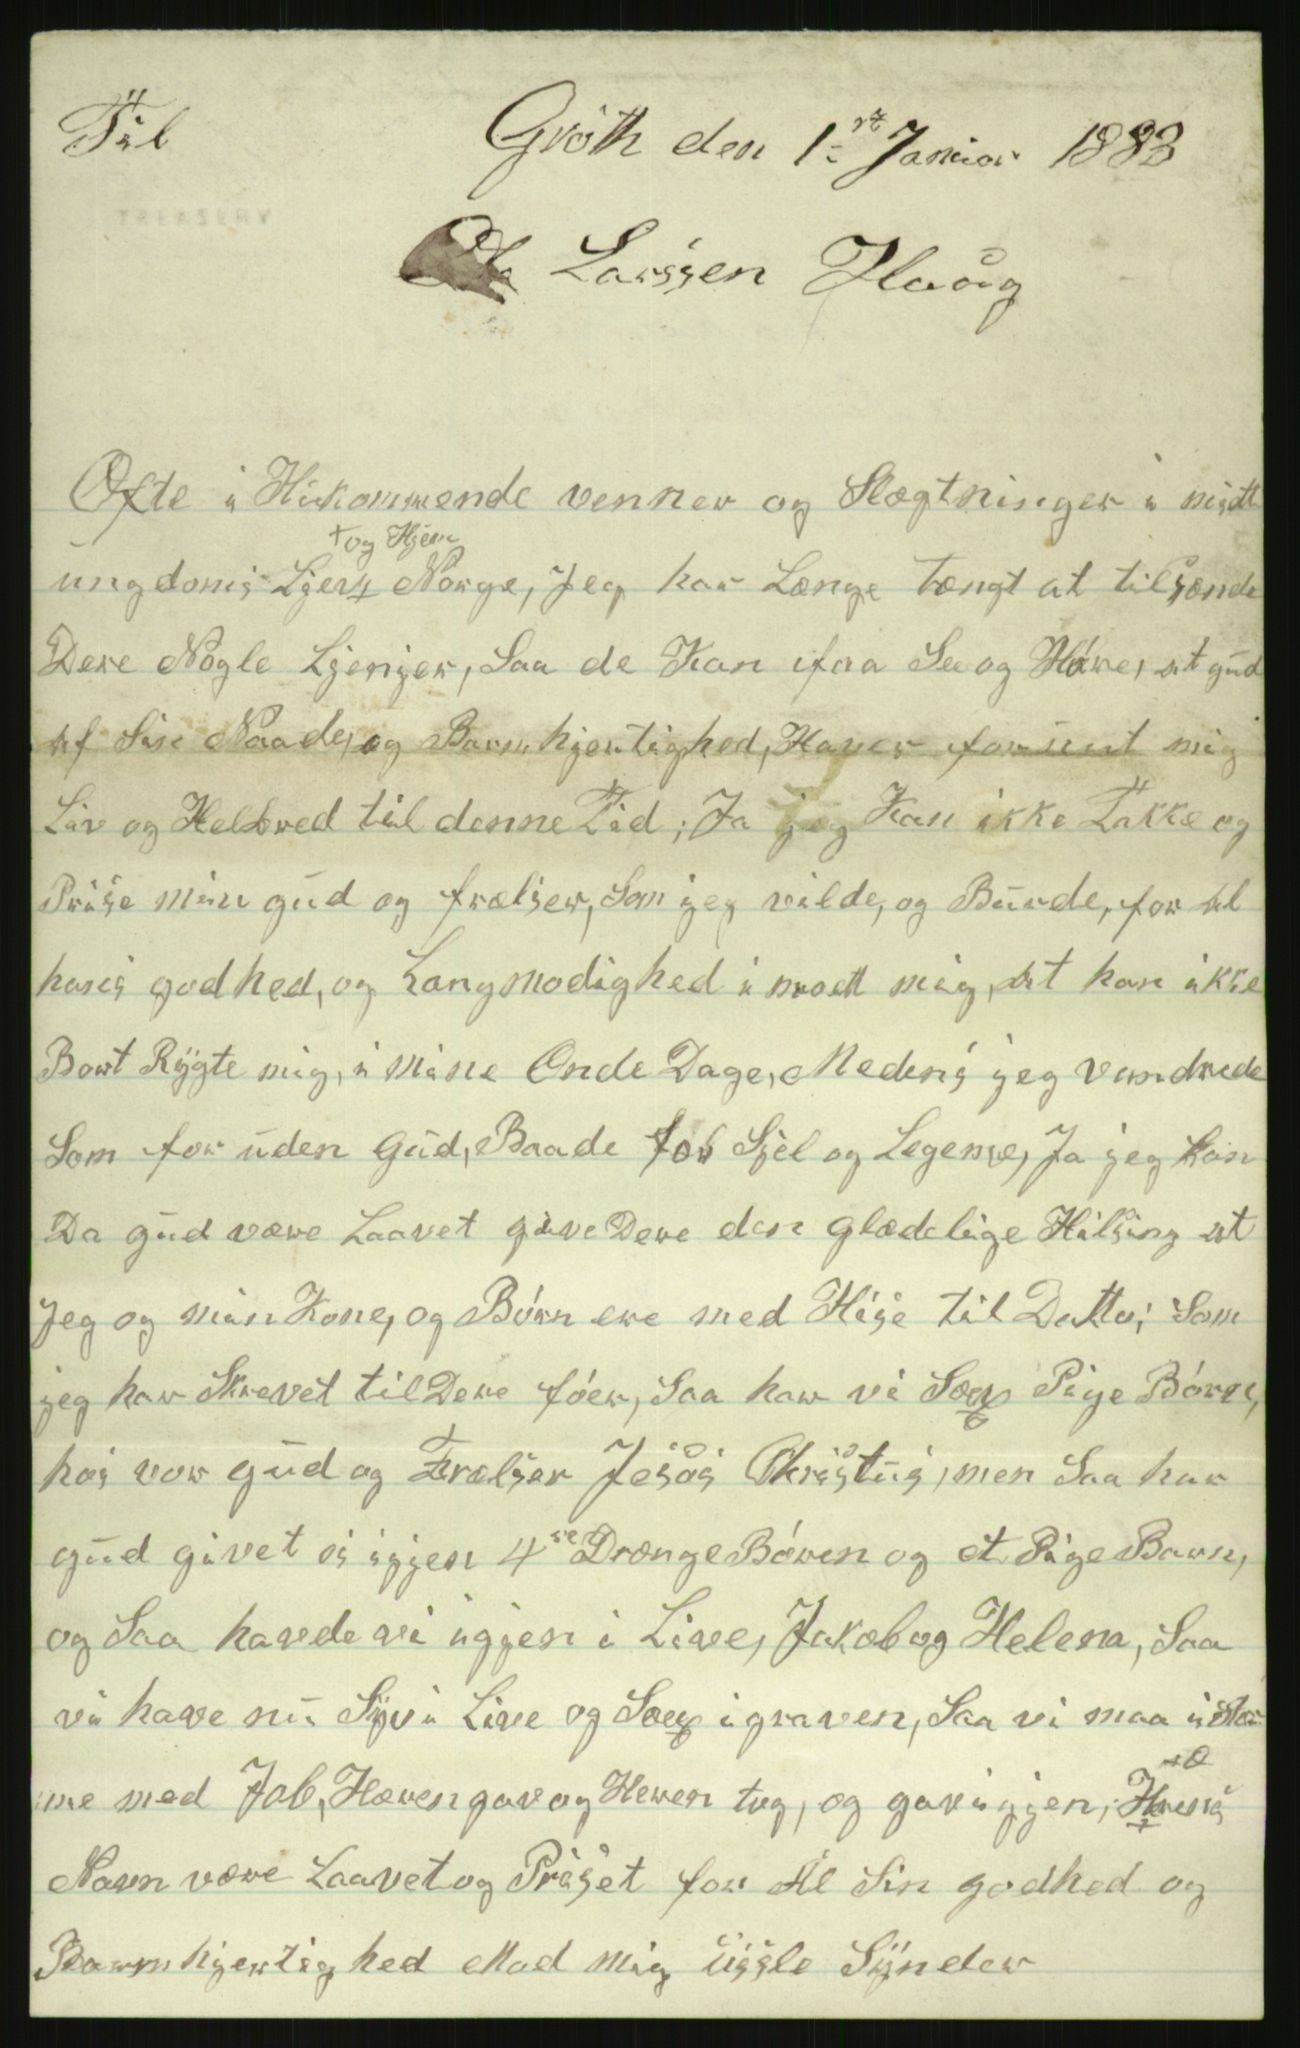 Til Gröth den 1st Januar 1883
TREASURY
Ola Larssen Haug
Ofte i Hukommende venner og Slægtninger i midt
ungdoms Ljerz + og Hjem Norge, Jeg har Længe tængt at tilsænde
Dere Nogle Ljenjer, Saa de Kan ifaa See og Høre, at gud
af Sin Naade, og Barmhjertighed, Haver forunt mig
Liv og Helbred til denne Tid; Ja jeg Kan ikke Takke og
Prise min gud og frælser, Som jeg vilde, og Burde, for al
hans godhed, og Langmodighed i modt mig, at han ikke
Bort Rygte mig, i Mine Onde Dage, Medens jeg vandrede
Som for uden Gud, Baade for Sjel og Legeme, Ja jeg Kan
Da gud være Laavet give Dere den glædelige Hilsing at
Jeg og min Kone, og Børn ere med Hise til Datto; Som
jeg har Skrevet til Dere føer, Saa har vi Sex Pige Børn,
hos vor gud og Frælser Jesos Christus, men Saa har
gud givet os igjen 4re Drænge Børen og et Pige Barn,
og Saa havde vi igjen i Live, Jakob og Helena, Saa
vi have nu Syv i Live og Sex i graven, Saa vi maa istæ
me med Job, Hæren gav og Heren tog, og gav igjen, Herens
Navn være Laavet og Priset for Al Sin godhed og
Barmhjertighed Mod Mig Ussle Synder